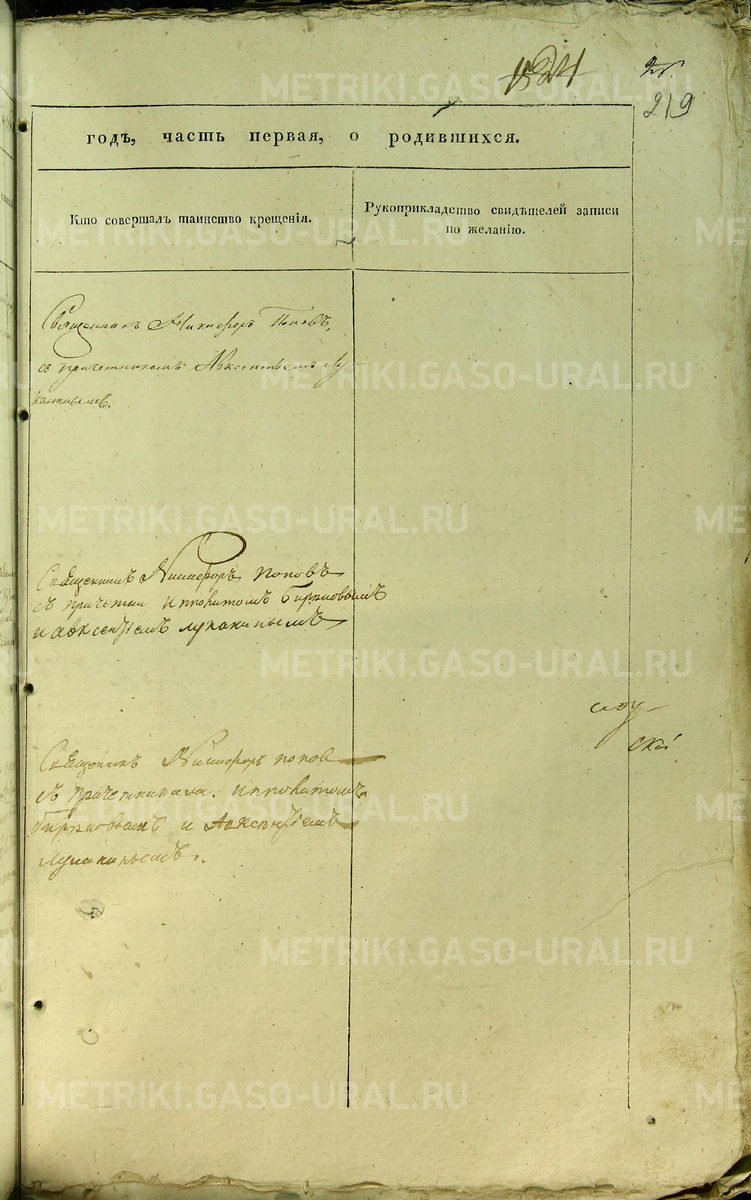 1524
25.
219
годъ, часть первая, о родившихся.
Кто совершалъ таинство крещенія.
Рукоприкладство свидѣтелей записи
по желанію.
Священникъ Никифоръ Поповъ,
съ причетникомъ Авксентьемъ Лу
канинымъ.
Священникъ Никифоръ поповъ
съ причетни Ипполитомъ
и авксентіемъ луканинымъ
Священникъ Никифоръ попов
съ причетниками: ипполитомъ
и Авксентіемъ
Луканинымъ.
скі
METRIKI.GASO-URAL.RU